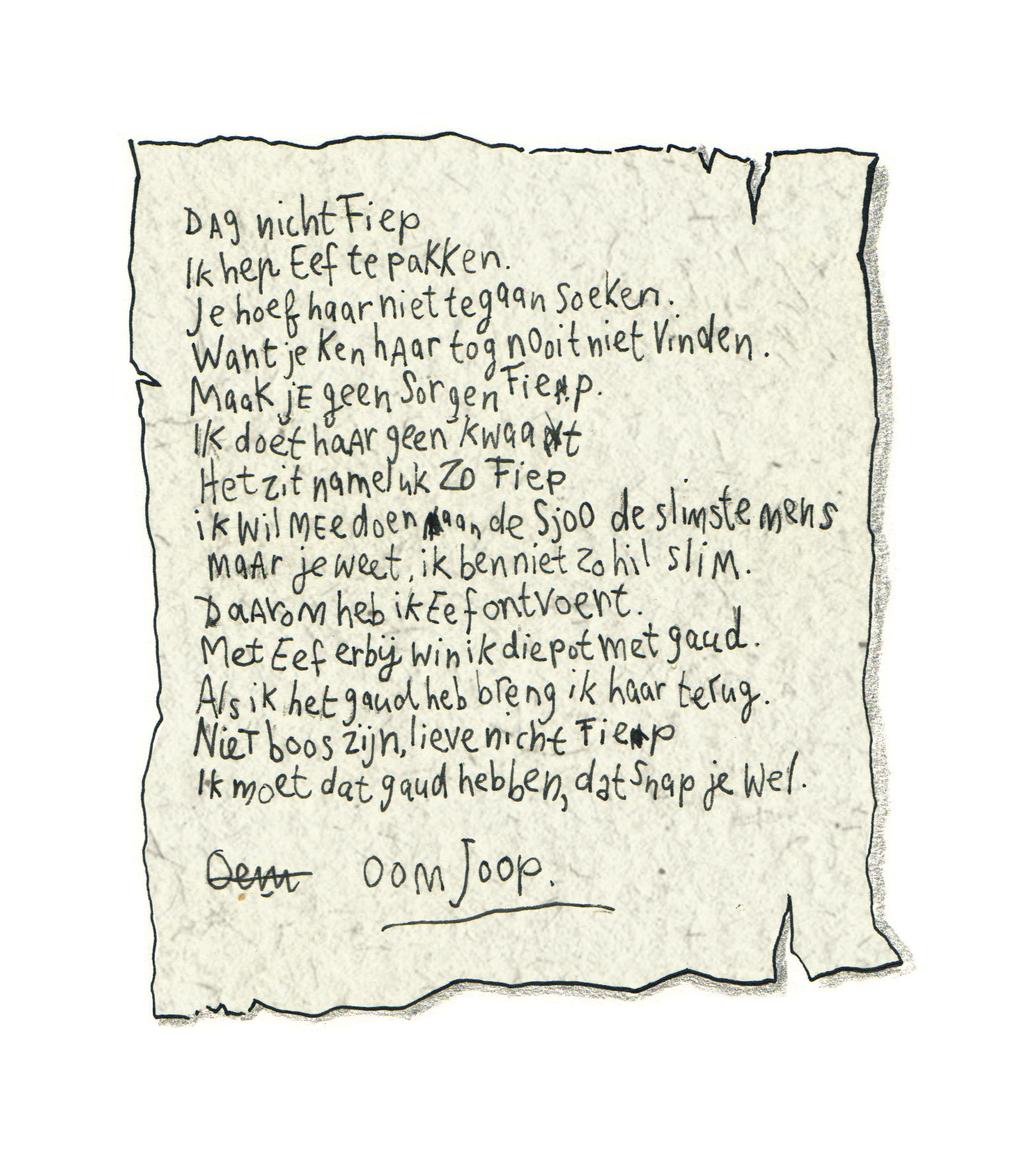 Dag nicht Fiep
Ik hep Eef te pakken.
Je hoef haar niet te gaan soeken.
Want je ken haar tog nooit niet vinden.
Maak je geen sorgen Fiep.
Ik doet haar geen kwaat
Het zit nameluk zo Fiep
ik wil meedoen aan de Sjoo de slimste mens
maar je weet, ik ben niet zo hil slim.
Daarom heb ik Eef ontvoert.
Met Eef erbij win ik die pot met gaud.
Als ik het gaud heb breng ik haar terug.
Niet boos zijn, lieve nicht Fiep
Ik moet dat gaud hebben, dat snap je wel.
Oem Oom Joop.